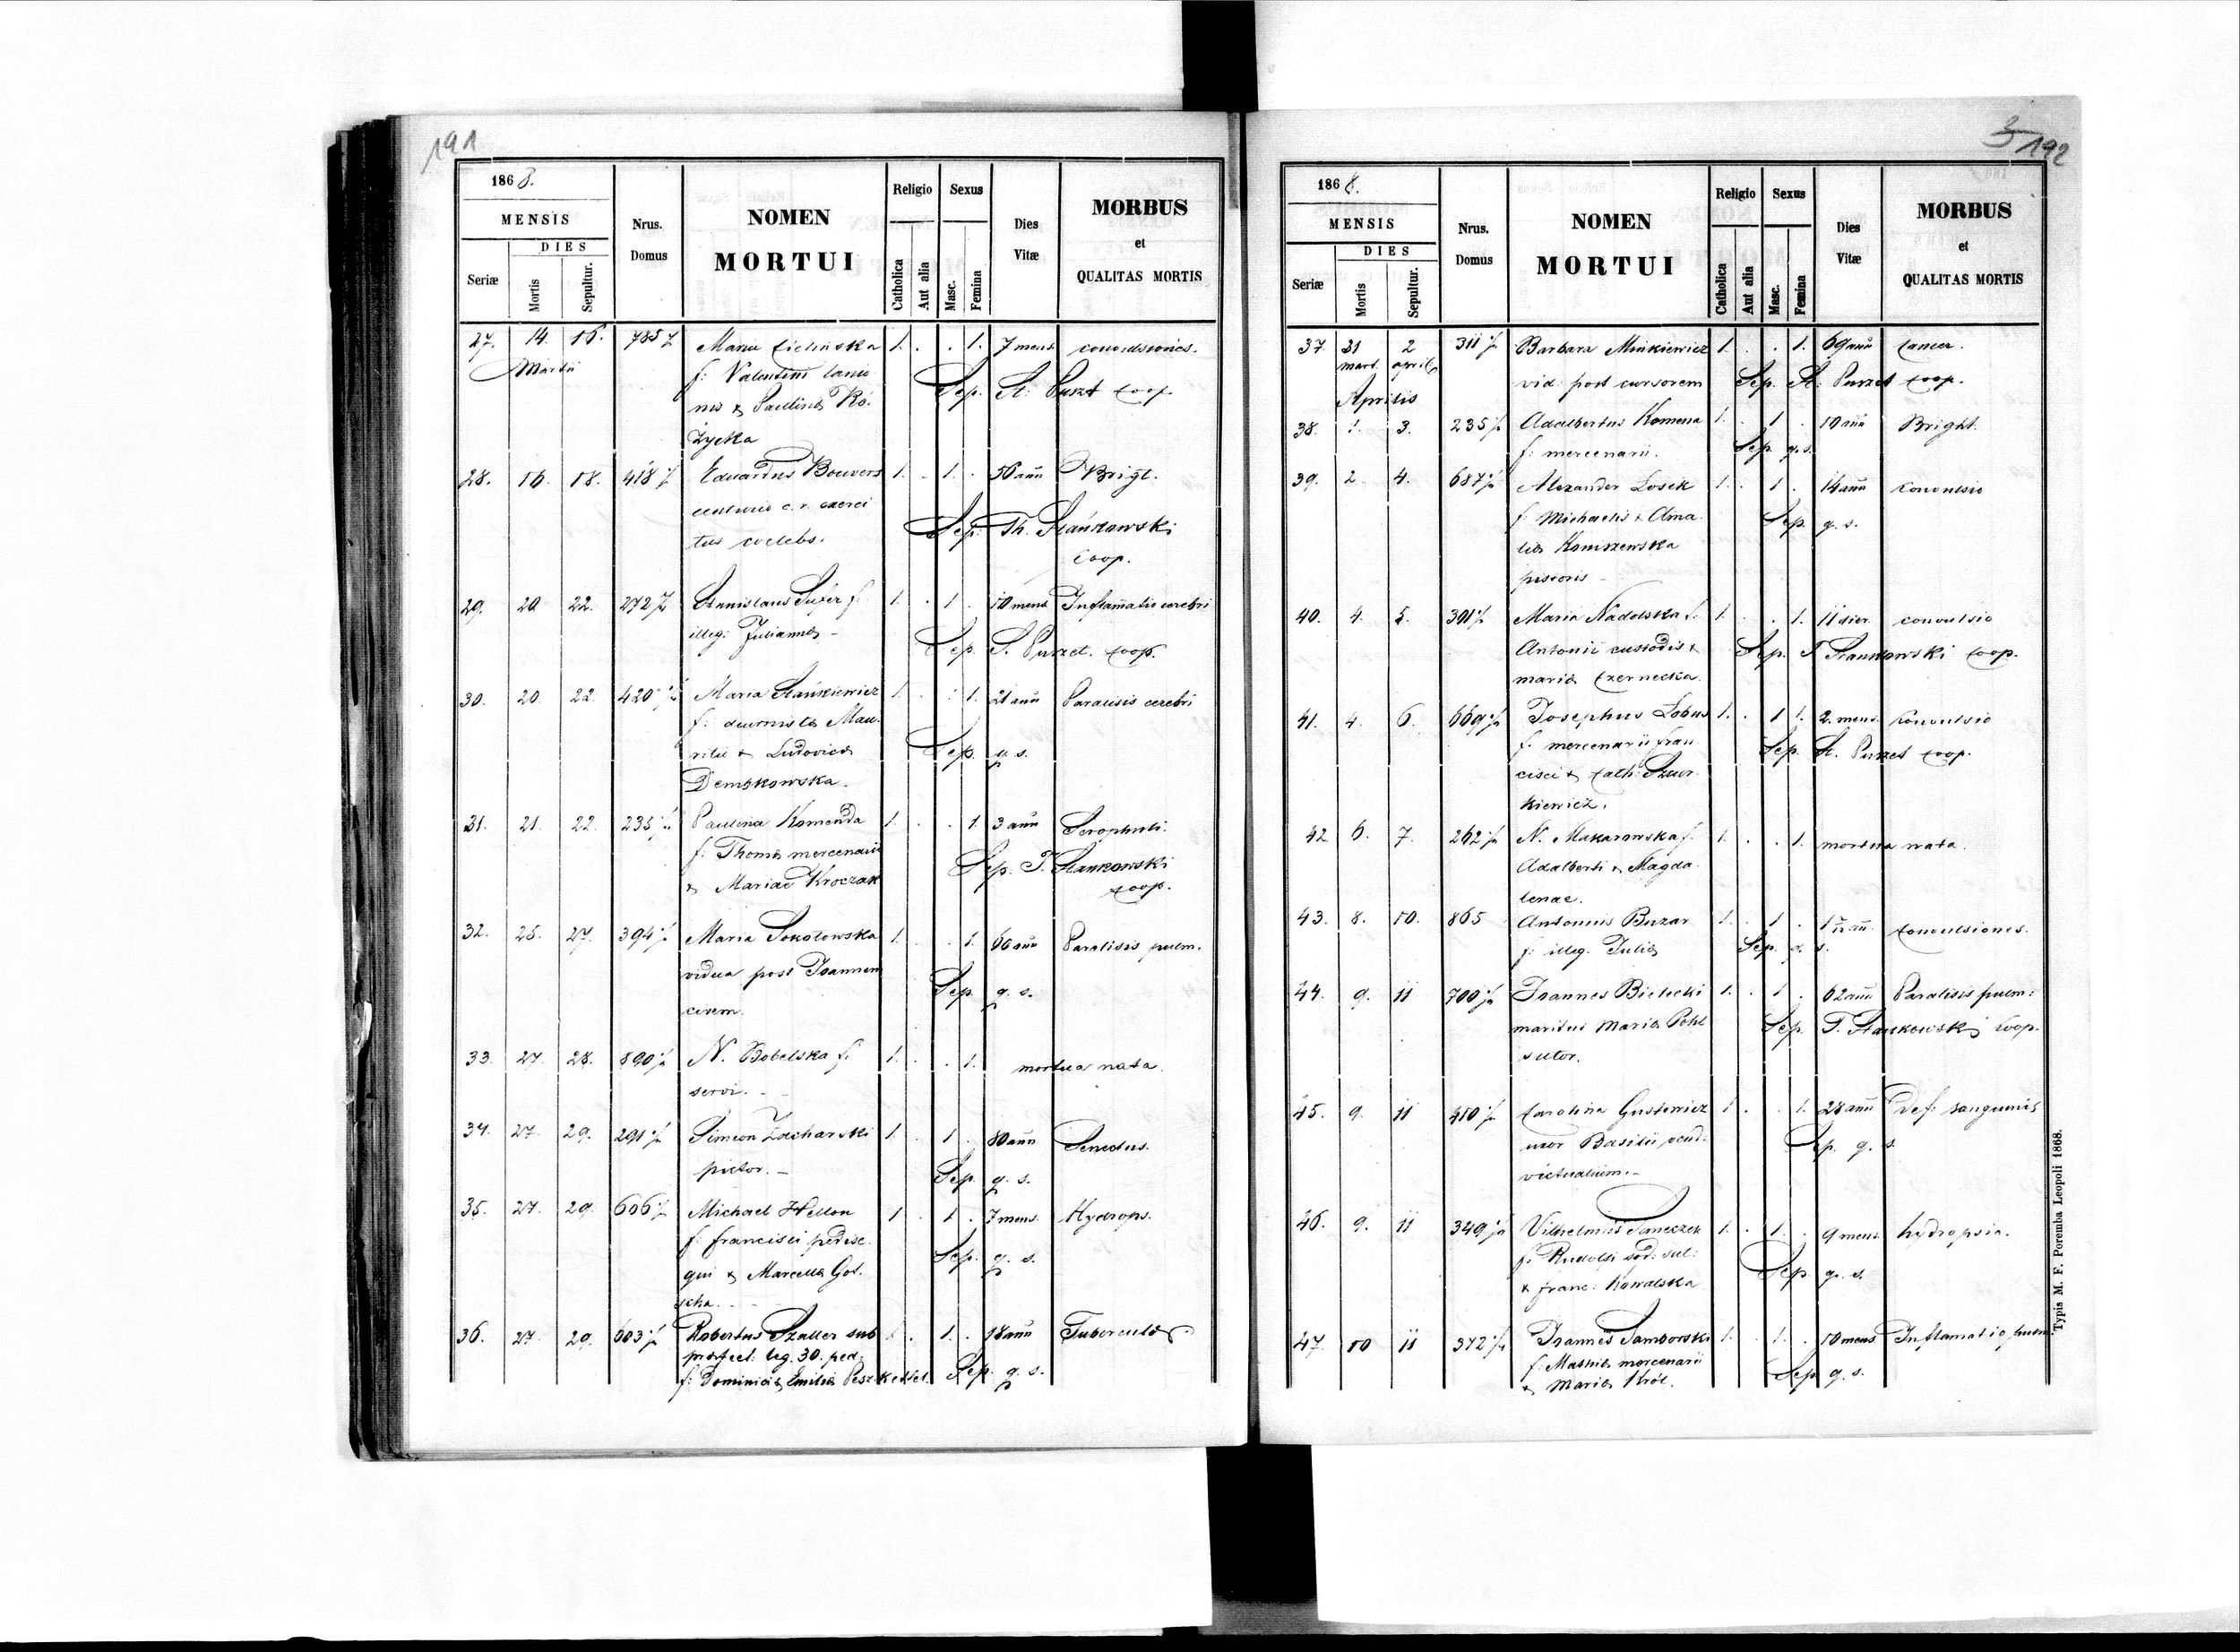 191
1868.
MENSIS
DIES
Seriæ
Mortis
Sepultur.
Nrus.
Domus
NOMEN
MORTUI
Religio
Catholica
Aut alia
Sexus
Masc.
Femina
Dies
Vitæ
MORBUS
et
QUALITAS MORTIS
27. 14. 16. 785 Maria Cielińska 1. . . 1. 7 mens. convulsiones.
Martii f: Valentini lanio
nis & Paulinæ Ró. Sep. St: Puszet Coop.
życka
28. 16. 18. 418 Eduardus Bouvers 1. . 1. . 56 ann Brigt.
centurio c. r. exerci
tus coelebs. Sep. Th. Stańkowski
Coop.
29. 20 22. 272 Stanislaus f. 1. . 1. 10 mens Inflamatio cerebri
illeg: Juliannæ - Sep. S. Puszet. Coop.
30. 20. 22. 420 Maria Stańkiewicz 1. . . 1. 21 ann Paralisis cerebri
f: diurnistæ Mau
ritii & Ludovicæ Sep. q. s.
Dembkowska.
31. 21. 22. 235 Paulina Komenda 1. . . 1. 3 ann Scrophuli.
f: Thomæ mercenarii
& Mariae Kroczak Sep. T. Stankowski
Coop.
32. 25. 27. 394 Maria Sokołowska 1. . . 1. 60 ann Paralisis pulm.
vidua post Joannem
civem. Sep. q. s.
33. 27. 28. 890 N. Bobelska f. 1. . . 1. mortua nata.
servi. -
34. 27. 29. 291 Simeon Zacharski 1. . 1. . 80 ann Senectus.
pictor. - Sep. q. s.
35. 27. 29. 606 Michael Hellon 1 . 1. . 7 mens. Hydrops.
f: Francisci pedise
qui & Marcellæ Got. Sep. q. s.
scha. -
36. 27. 29. 603 Robertus Szaller sub . 1. . 18 ann Tuberculos.
præfect: leg. 30. ped:
f: Dominici & Emiliæ Sep. q. s.
192
1868.
MENSIS
DIES
Seriæ
Mortis
Sepultur.
Nrus.
Domus
NOMEN
MORTUI
Religio
Catholica
Aut alia
Sexus
Masc.
Femina
Dies
Vitæ
MORBUS
et
QUALITAS MORTIS
37. 31 2 311 Barbara Minkiewicz 1. . . 1. 69 ann Cancer.
mart. april. vid: post cursorem Sep. St: Puszet Coop.
Aprilis
38. 1. 3. 235 Adalbertus Komena 1. . 1 . 10 ann Bright.
f: mercenarii. Sep. q. s.
39. 2 4. 687 Alexander Losek 1. . 1 . 14 ann Convulsio
f: Michaelis & Ama. Sep. q. s.
liæ Koniszewska
pistoris -
40. 4. 5. 301 Maria Nadolska f: 1. . . 1. 11 dier. convulsio
Antonii custodis & Sep. T Stankowski Coop.
mariæ Czernecka.
41. 4. 6. 669 Josephus Lobus 1. . 1 1. 2. mens. Convulsio
f: mercenarii Fran Sep. St. Puszet Coop.
cisci & Cath:
kiewicz.
42. 6. 7. 262 N. Makarowska f. 1. . . 1. mortua nata.
Adalberti & Magda
lenae.
43. 8. 10. 865 Antonius Buzar 1. . 1 . Convulsiones.
f: illeg. Juliæ Sep. q. s.
44. 9. 11 700 Joannes Bielecki 1. . 1 . 62 ann Paralisis pulm:
maritus Mariæ Pohl Sep. T. Stankowski Coop.
sutor.
45. 9. 11 410 Carolina Gustowicz 1 . . 1. 28 ann Def: sanguinis
uxor Basilii vend: Sep. q. s.
victualium. -
46. 9. 11 349 Vilhelmus Janeczek 1. . 1. . 9 mens hydropsia.
f: Rudolfi
& Franc: Kowalska Sep q. s.
47. 10 11 372 Joannes Samborski 1. . 1. . 10 mens Inflamatio pulm.
f: Mathiæ mercenarii Sep q. s.
& Mariæ Król.
Typis M. F. Poremba Leopoli 1868.